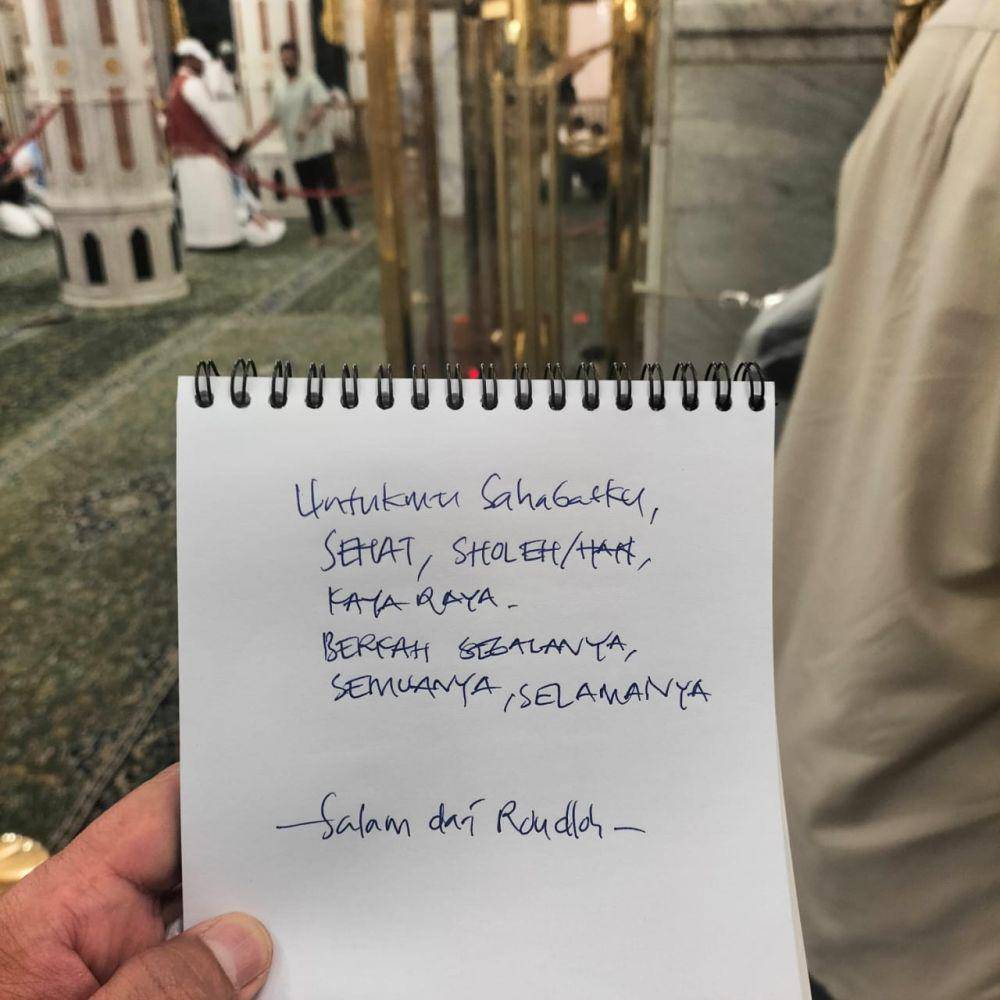 Untukmu Sahabatku,
SEHAT, SHOLEH/HAH,
KAYA RAYA.
BERKAH SEGALANYA,
SEMUANYA, SELAMANYA
- Salam dari Roudloh -